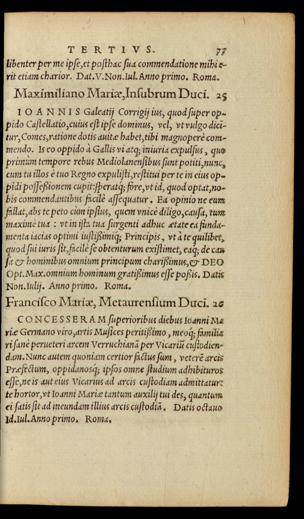 TERTIVS. 77
libenter per me ipse, et posthac sua commendatione mihi e-
rit etiam charior. Dat. V. Non. Iul. Anno primo. Roma.
Maximiliano Mariæ, Insubrum Duci. 25
IOANNIS Galeatij Corrigij ius, quod super op-
pido Castellatio, cuius est ipse dominus, vel, vt vulgo dici-
tur, Comes, ratione dotis auitæ habet, tibi magnoperè com-
mendo. Is eo oppido à Gallis vi atq; iniuria expulsus, quo
primùm tempore rebus Mediolanensibus sunt potiti, nunc,
cum tu illos è tuo Regno expulisti, restitui per te in eius op-
pidi possessionem cupit: speratq; fore, vt id, quod optat, no-
bis commendantibus facilè assequatur. Ea opinio ne eum
fallat, abs te peto cùm ipsius, quem vnicè diligo, causa, tum
maximè tua: vt in ista tua surgenti adhuc ætate ea funda-
menta iactas optimi iustißimiq; Principis, vt à te quilibet,
quod sui iuris sit, facilè se obtenturum existimet, eaq; de cau
sa & hominibus omnium principum charißimus, & DEO
Opt. Max. omnium hominum gratißimus esse poßis. Datis
Non. Iulij. Anno primo. Roma.
Francisco Mariæ, Metaurensium Duci. 26
CONCESSERAM superioribus diebus Ioanni Ma
riæ Germano viro, artis Musices peritißimo, meoq; familia
ri sanè perueteri arcem Verruchianã per Vicariũ custodien-
dam. Nunc autem quoniam certior factus sum, veterẽ arcis
Præfectum, oppidanosq; ipsos omne studium adhibituros
esse, ne is aut eius Vicarius ad arcis custodiam admittatur:
te hortor, vt Ioanni Mariæ tantum auxilij tui des, quantum
ei satis sit ad ineundam illius arcis custodiã. Datis octauo
Id. Iul. Anno primo. Roma.